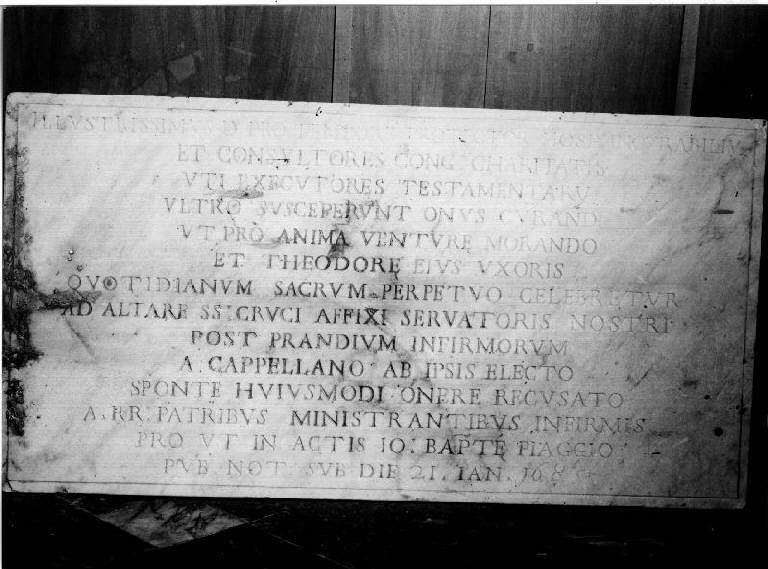 ILLVSTRISSIMVS D.
ET CONSVLTORES CONG. CHARITATIS
VTI EXECVTORES TESTAMENTARŪ
VLTRO SVSCEPERVNT ONVS CVRAND
VT PRO ANIMA VENTVRE MORANDO
ET THEODORE EIVS VXORIS
QVOTIDIANVM SACRVM PERPETVO CELEBRETVR
AD ALTARE SS: CRVCI AFFIXI SERVATORIS NOSTRI
POST PRANDIVM INFIRMORVM
A CAPPELLANO AB IPSIS ELECTO
SPONTE HVIVSMODI ONERE RECVSATO
A. RR. PATRIBVS MINISTRANTIBVS INFIRMIS
PRO VT IN ACTIS IO: BAPTE PIAGGIO
PVB. NOT. SVB DIE 21. IAN.